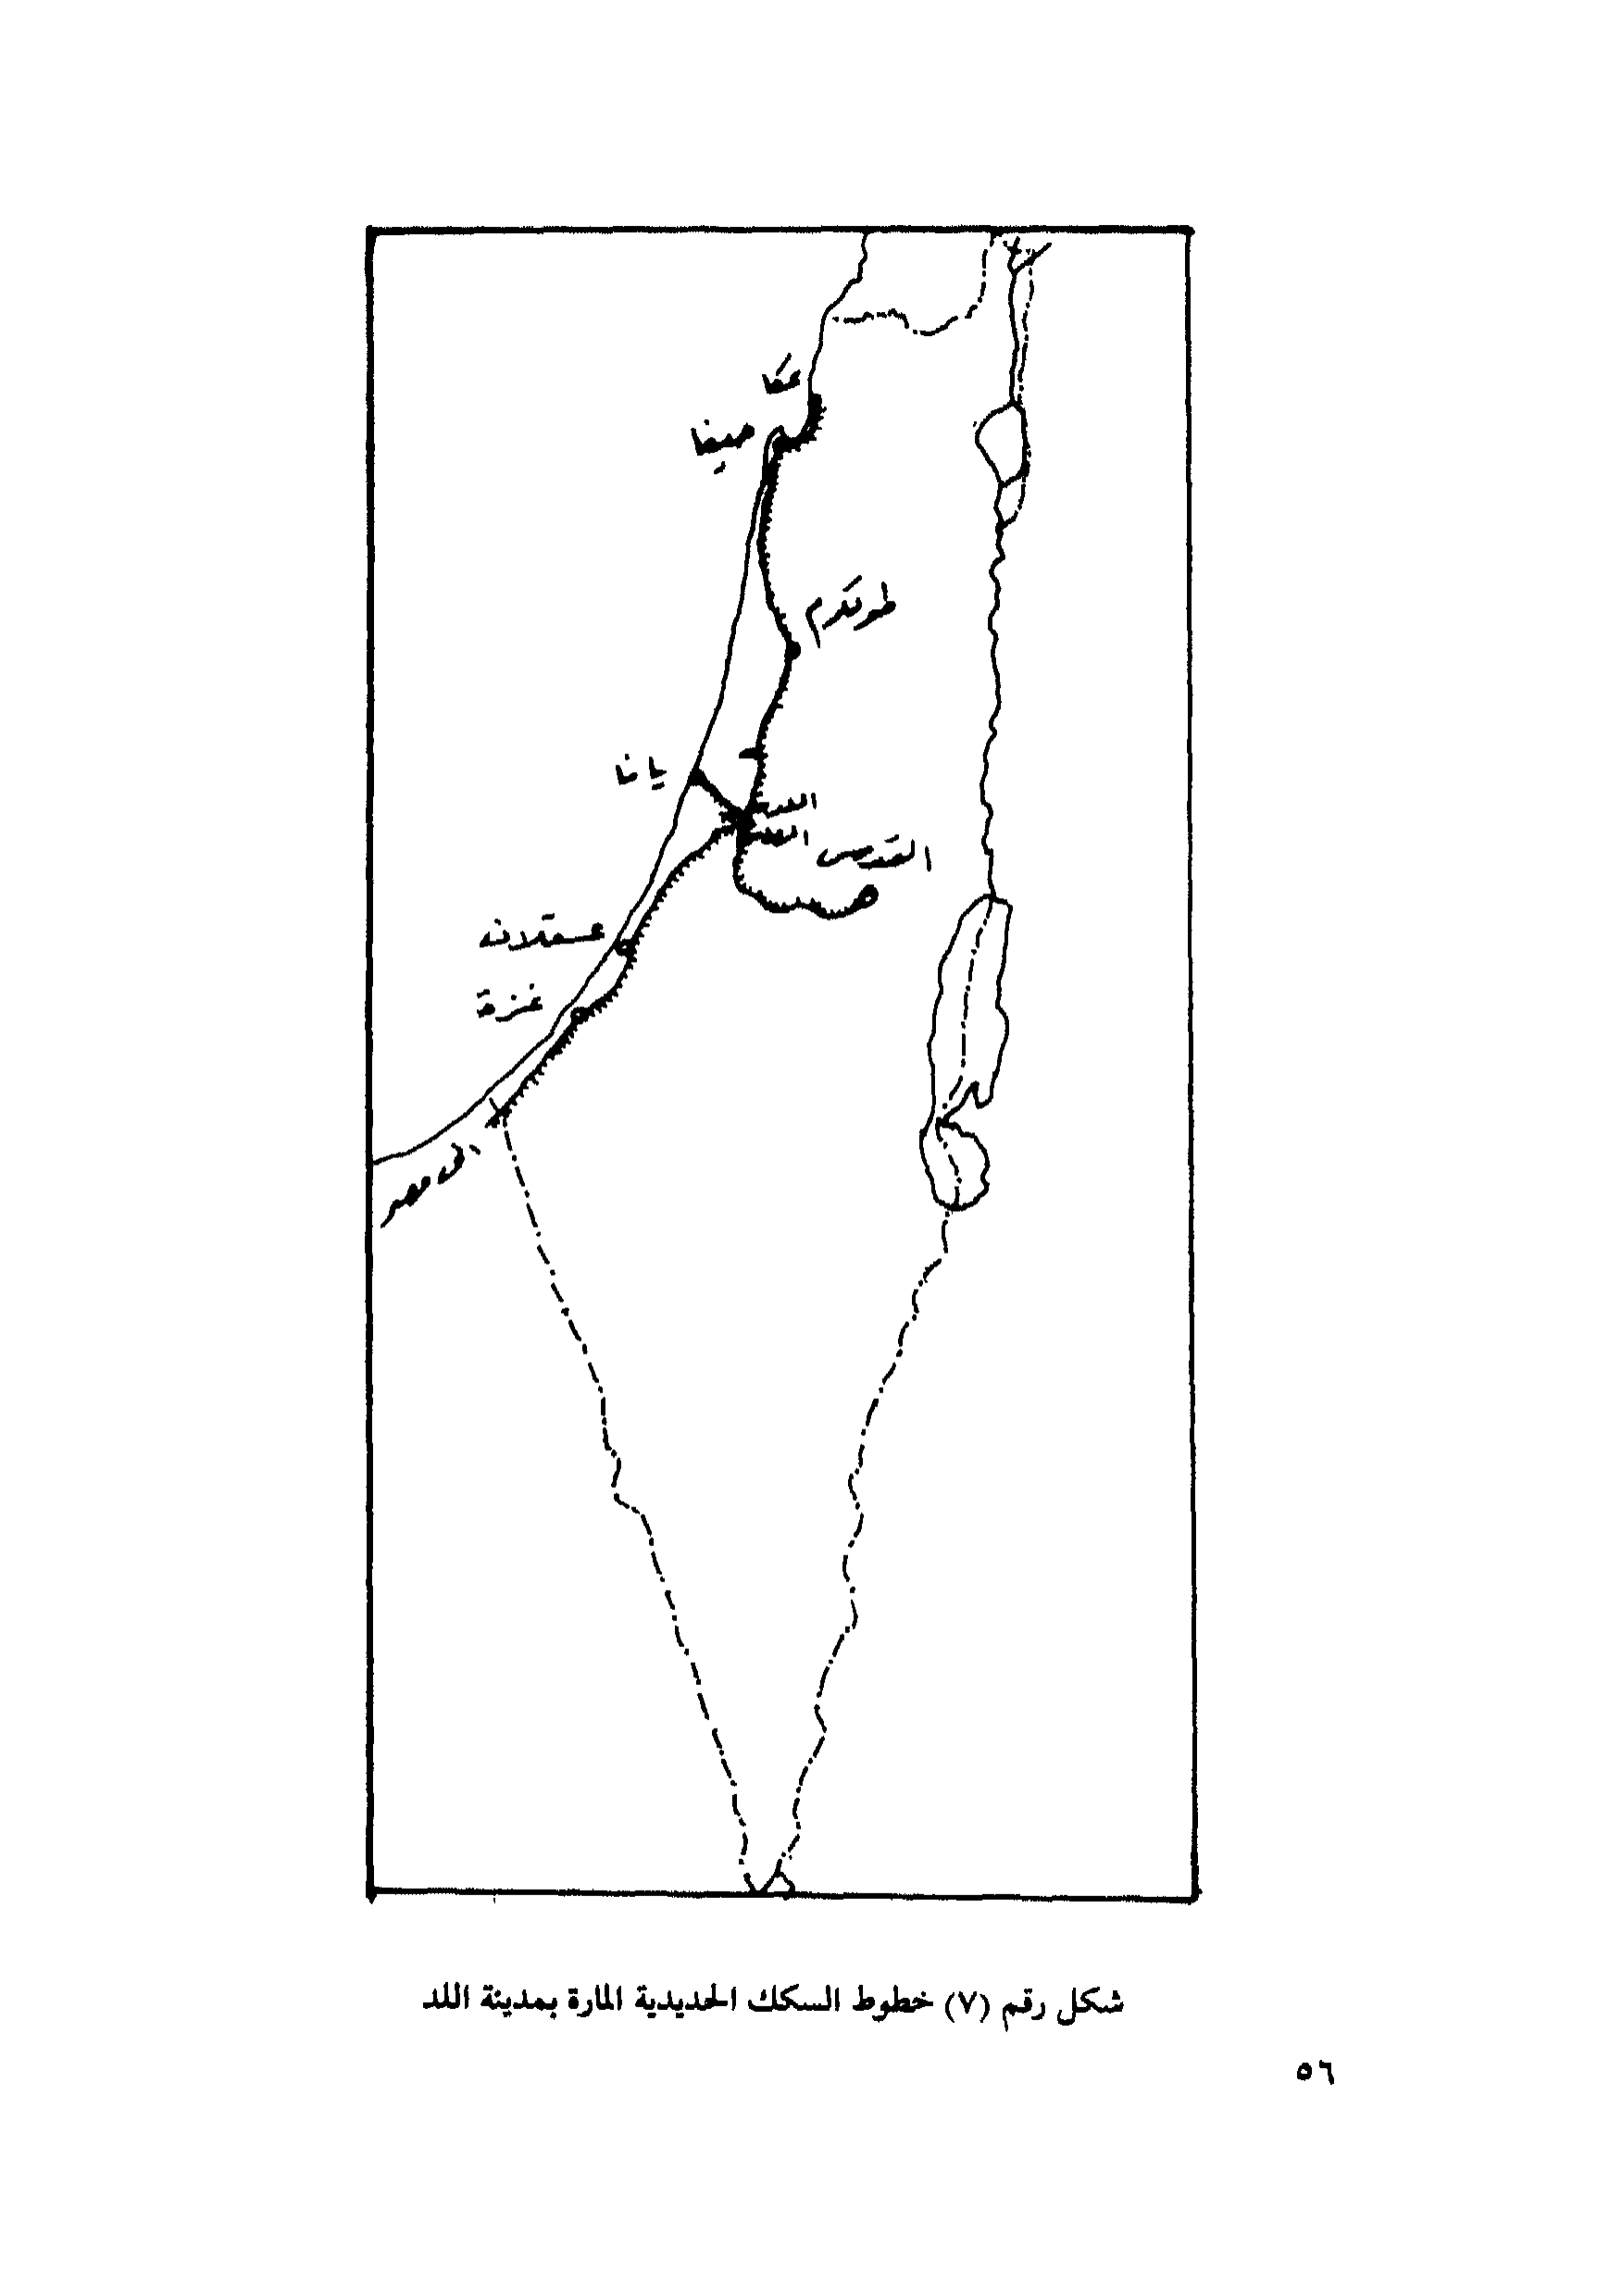 عكا
حيفا
طولكرم
يافا
اللد
القدس
عسقلان
غزة
الى مصر
شكل رقم (٧) خطوط السكك الحديدية المارة بمدينة اللد
٥٦